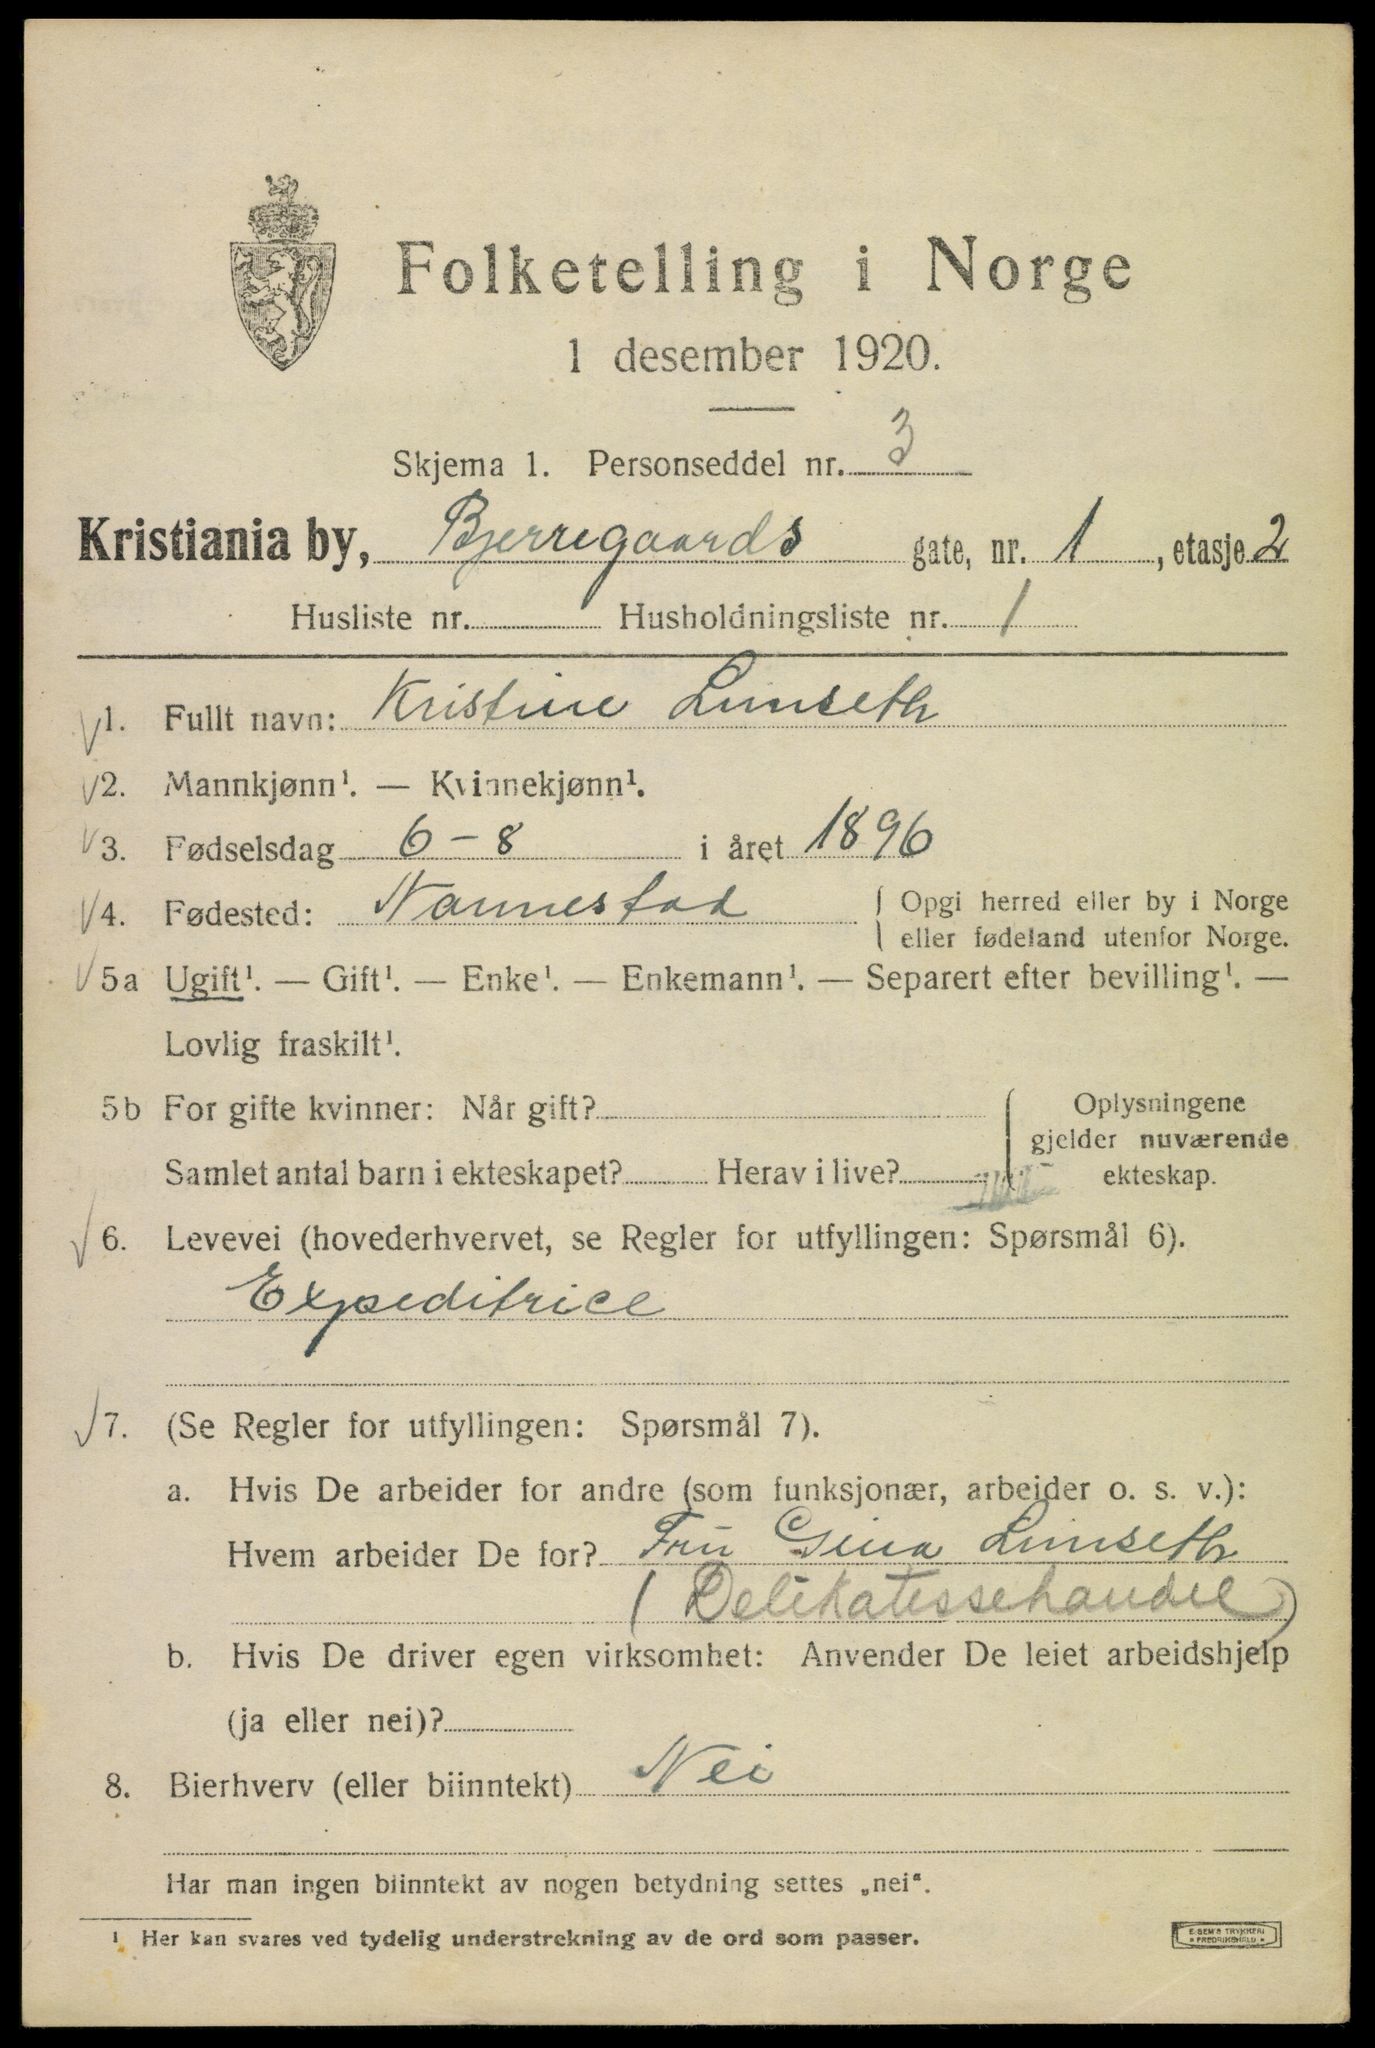 Folketelling i Norge
1 desember 1920.
Skjema 1. Personseddel nr. 3
Kristiania by, Bjerregaards gate, nr. 1, etasje 2
Husliste nr. Husholdningsliste nr. 1
1. Fullt navn: Kristine Limseth
2. Mannkjønn¹. — Kvinnekjønn¹.
3. Fødselsdag 6-8 i året 1896
4. Fødested: Nannestad { Opgi herred eller by i Norge
eller fødeland utenfor Norge.
5a Ugift¹. — Gift¹. — Enke¹. — Enkemann¹. — Separert efter bevilling¹. —
Lovlig fraskilt¹.
5b For gifte kvinner: Når gift? { Oplysningene
gjelder nuværende
Samlet antal barn i ekteskapet? Herav i live? ekteskap.
6. Levevei (hovederhvervet, se Regler for utfyllingen: Spørsmål 6).
Expeditrice
7. (Se Regler for utfyllingen: Spørsmål 7).
a. Hvis De arbeider for andre (som funksjonær, arbeider o. s. v.):
Hvem arbeider De for? Fru Gina Limseth
(Delikatessehandel)
b. Hvis De driver egen virksomhet: Anvender De leiet arbeidshjelp
(ja eller nei)?
8. Bierhverv (eller biinntekt) Nei
Har man ingen biinntekt av nogen betydning settes „nei“.
¹ Her kan svares ved tydelig understrekning av de ord som passer.
E. SEM'S TRYKKERI
FREDRIKSHALD